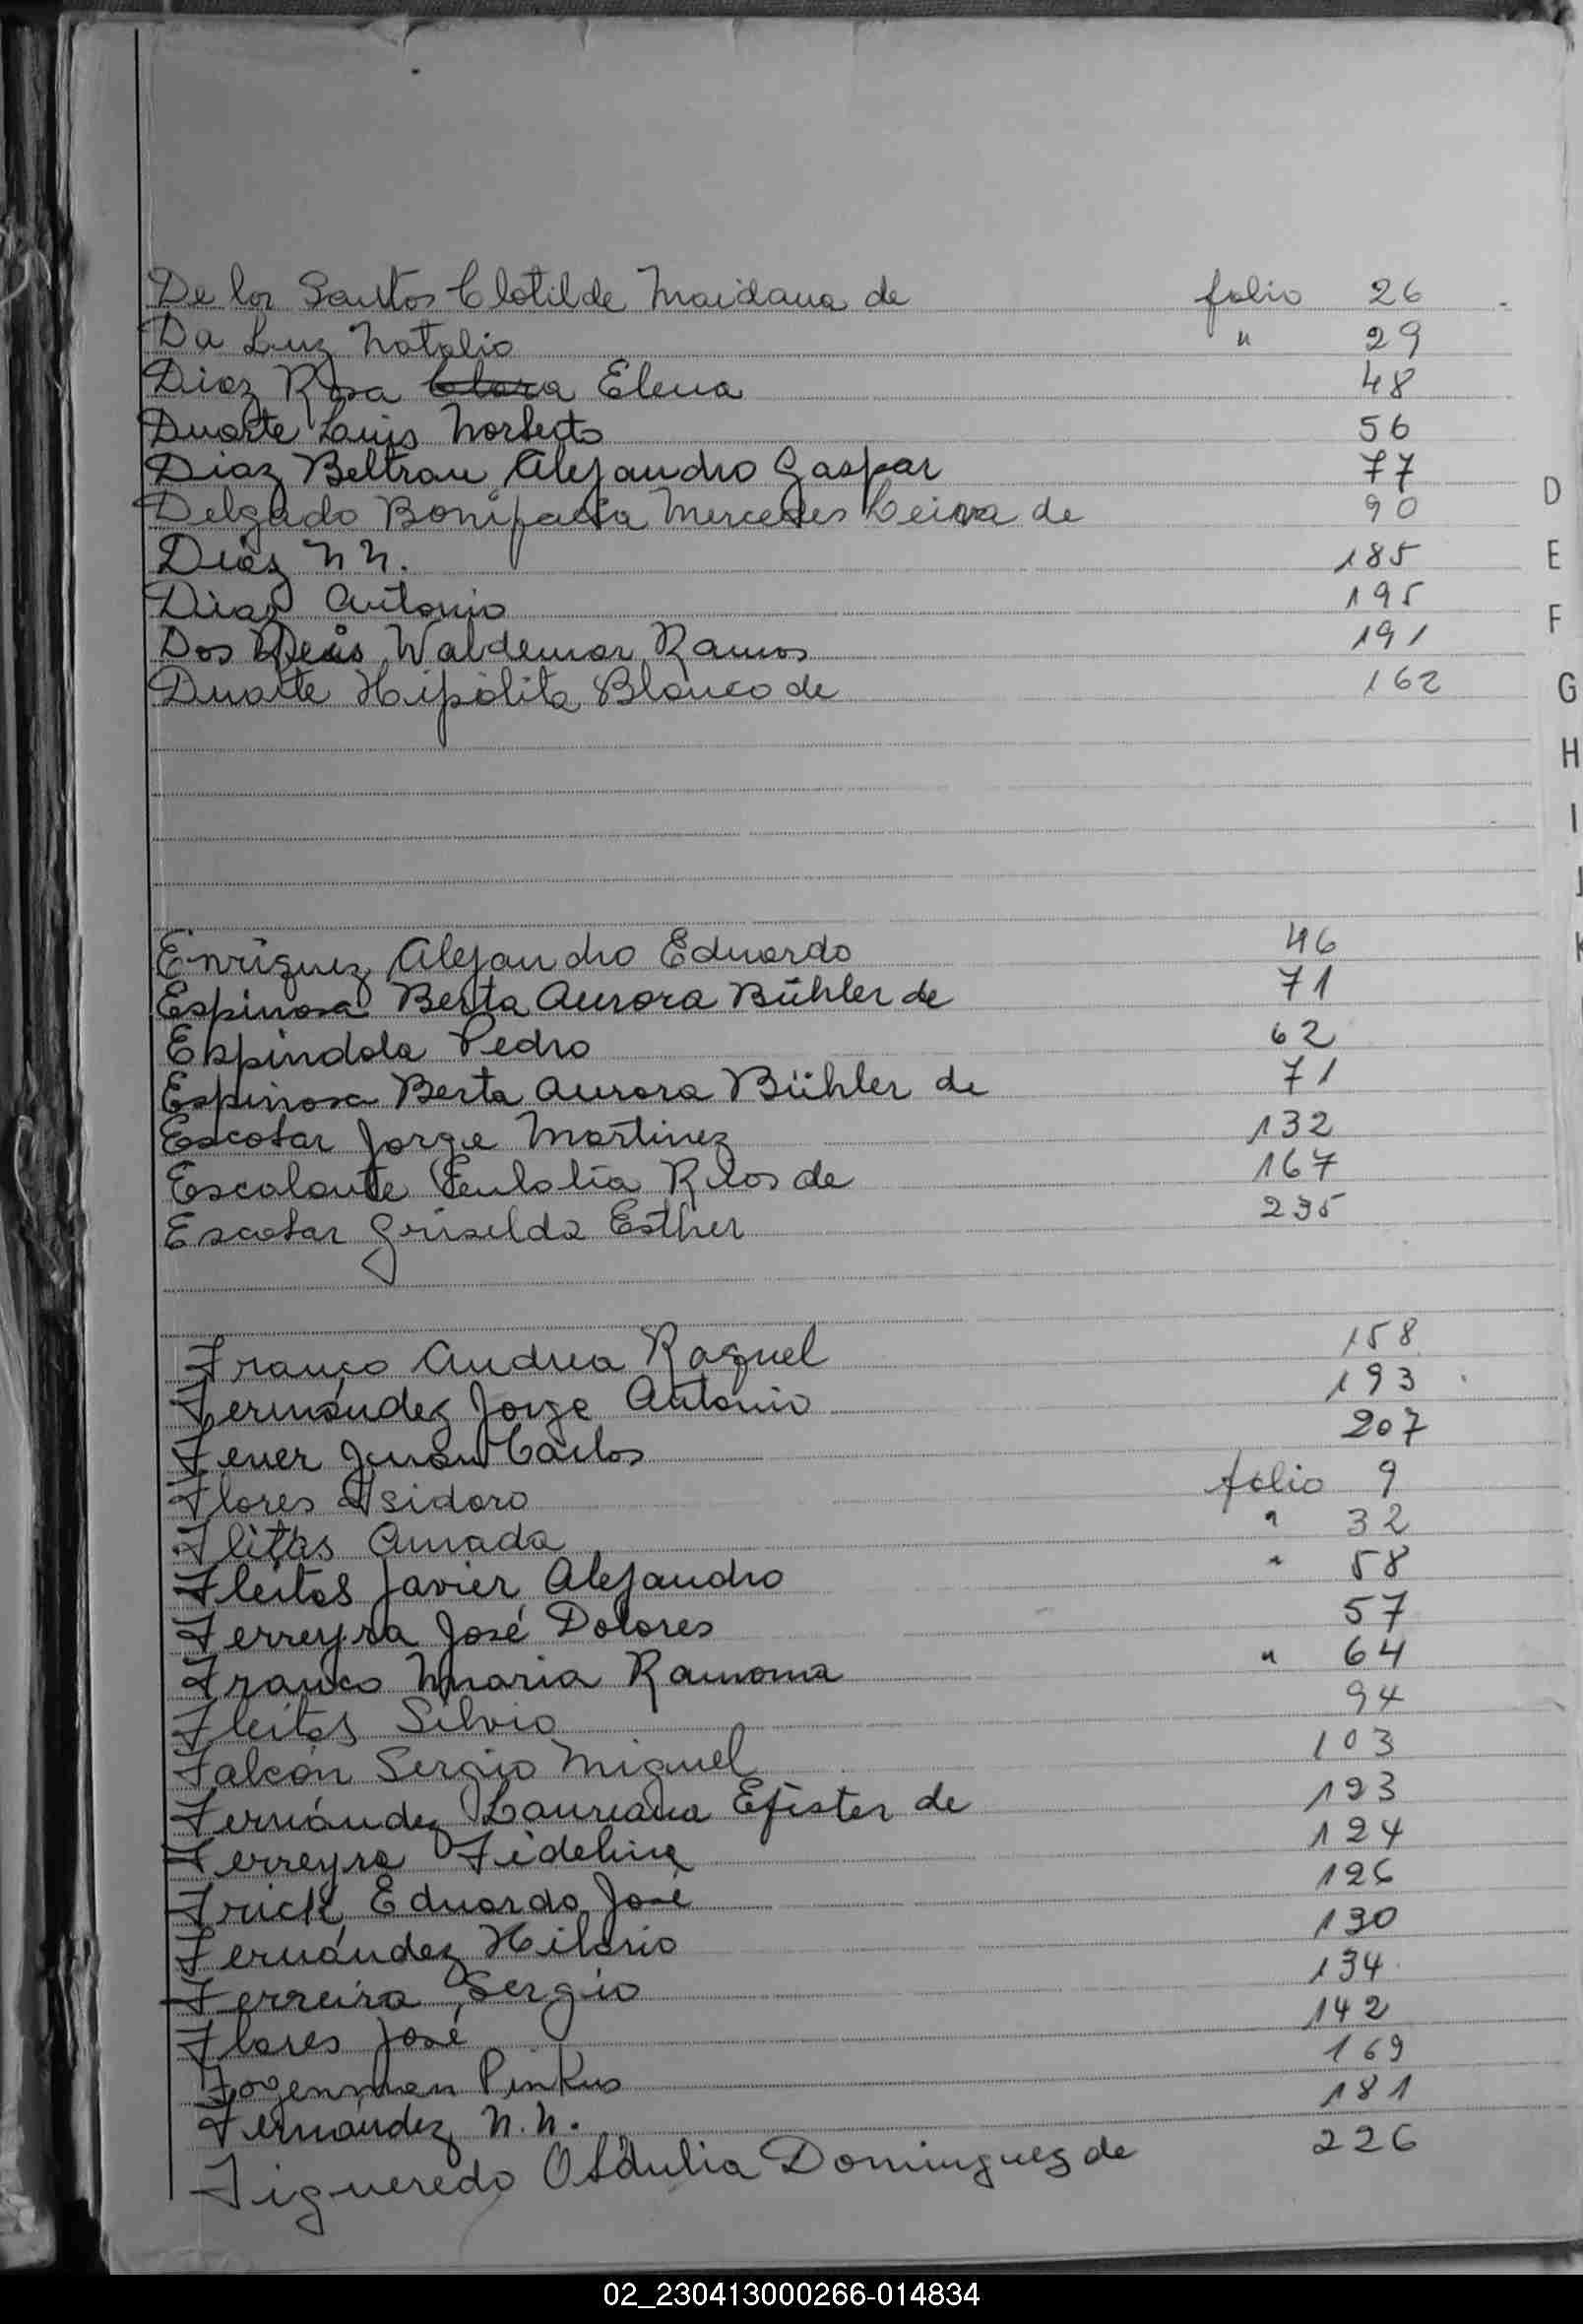 De los Santos Clotilde Maidana de folio 26
Da Luz Natalio " 29
Diaz Rosa Clara Elena 48
Duarte Luis Norberto 56
Diaz Beltran Alejandro Gaspar 77
Delgado Bonifacia Mercedes Leiva de 90
Diaz N N. 185
Diaz Antonio 195
Dos Reis Waldemar Ramos 191
Duarte Hipólita Blanco de 162
D
E
F
G
H
I
J
K
Enriquez Alejandro Eduardo 46
Espinosa Berta Aurora Bühler de 71
Espindola Pedro 62
Espinosa Berta Aurora Bühler de 71
Escobar Jorge Martinez 132
Escalante Eulalia Rios de 167
Escobar Griselda Esther 235
Franco Andrea Raquel 158
Fernández Jorge Antonio 193
Fener Juan Carlos 207
Flores Isidoro folio 9
Flitas Amada " 32
Fleitas Javier Alejandro " 58
Ferreyra José Dolores 57
Franco Maria Ramona " 64
Fleitas Silvio 94
Falcón Sergio Miguel 103
Fernández Laureana de 123
Ferreyra Fidelina 124
Frick Eduardo José 126
Fernández Hilario 130
Ferreira Sergio 134
Flores José 142
Pinkus 169
Fernández N.N. 181
Figueredo Obdulia Dominguez de 226
02_230413000266-014834